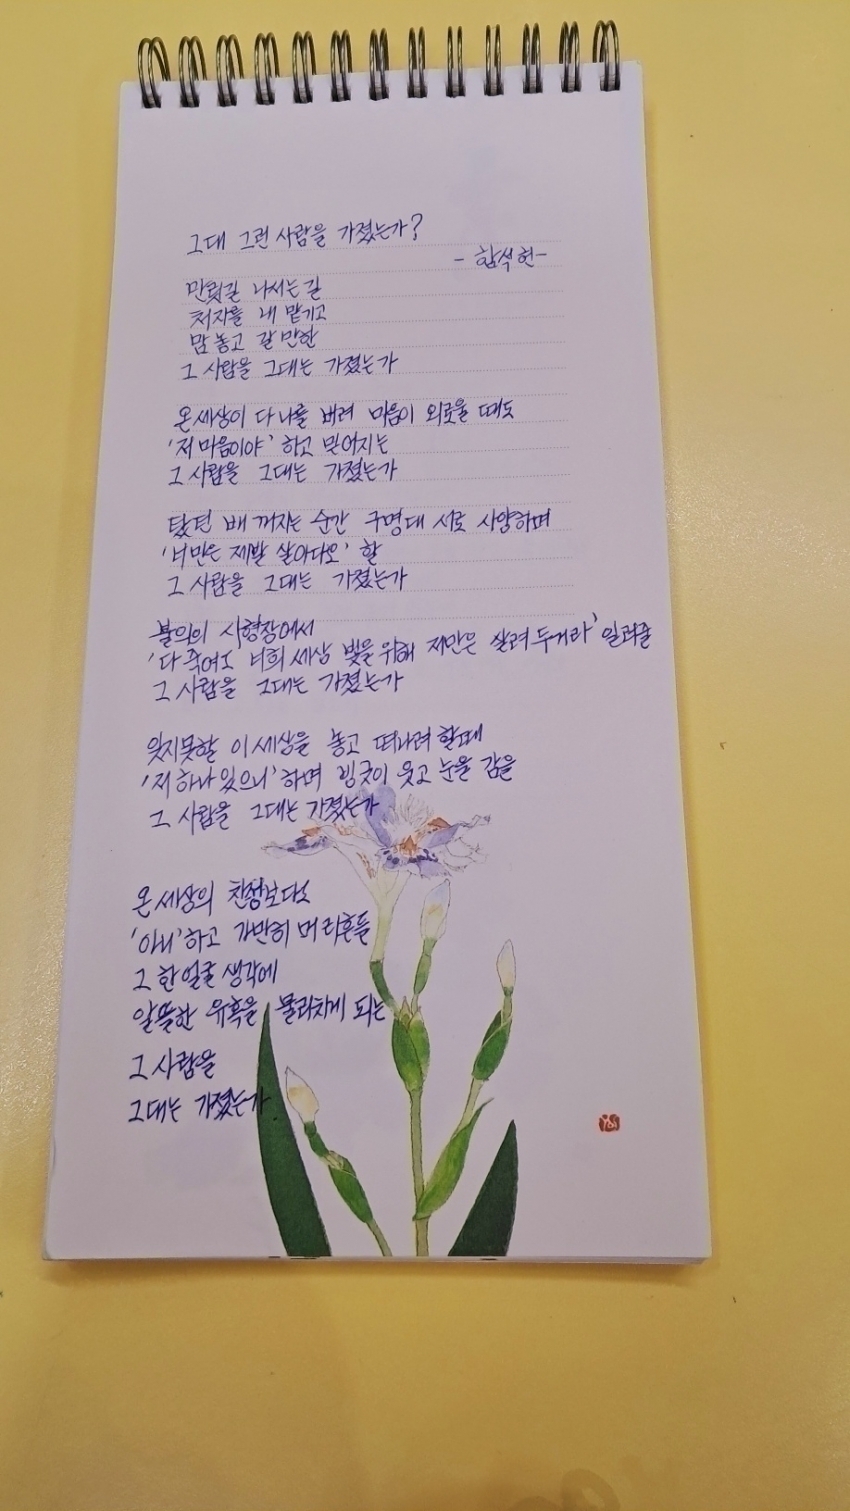 그대 그런 사람을 가졌는가?
- 함석헌-
만릿길 나서는 길
처자를 내 맡기고
맘 놓고 갈 만한
그 사람을 그대는 가졌는가
온 세상이 다 나를 버려 마음이 외로울 때도
'저 마음이야' 하고 믿어지는
그 사람을 그대는 가졌는가
탔던 배 꺼지는 순간 구명대 서로 사양하며
'너만은 제발 살아다오' 할
그 사람을 그대는 가졌는가
불의의 사형장에서
'다 죽여도 너희 세상 빛을 위해 저만은 살려 두거라' 일러줄
그 사람을 그대는 가졌는가
잊지못할 이 세상을 놓고 떠나려 할 때
'저 하나 있으니' 하며 빙긋이 웃고 눈을 감을
그 사람을 그대는 가졌는가
온 세상의 찬성보다도
'아니' 하고 가만히 머리흔들
그 한 얼굴 생각에
알뜰한 유혹을 물리치게 되는
그 사람을
그대는 가졌는가.